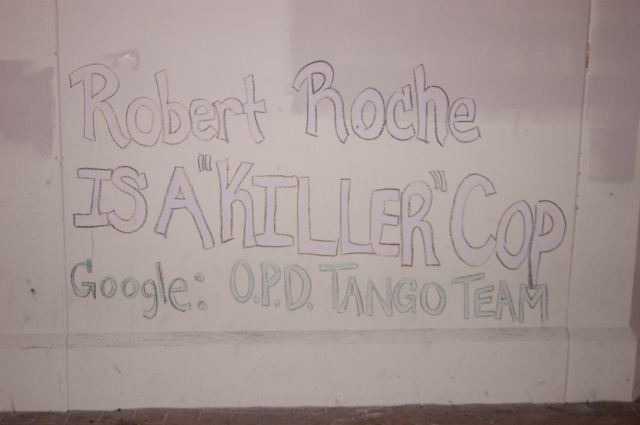 Robert Roche
IS A "KILLER" COP
Google: O.P.D. TANGO TEAM